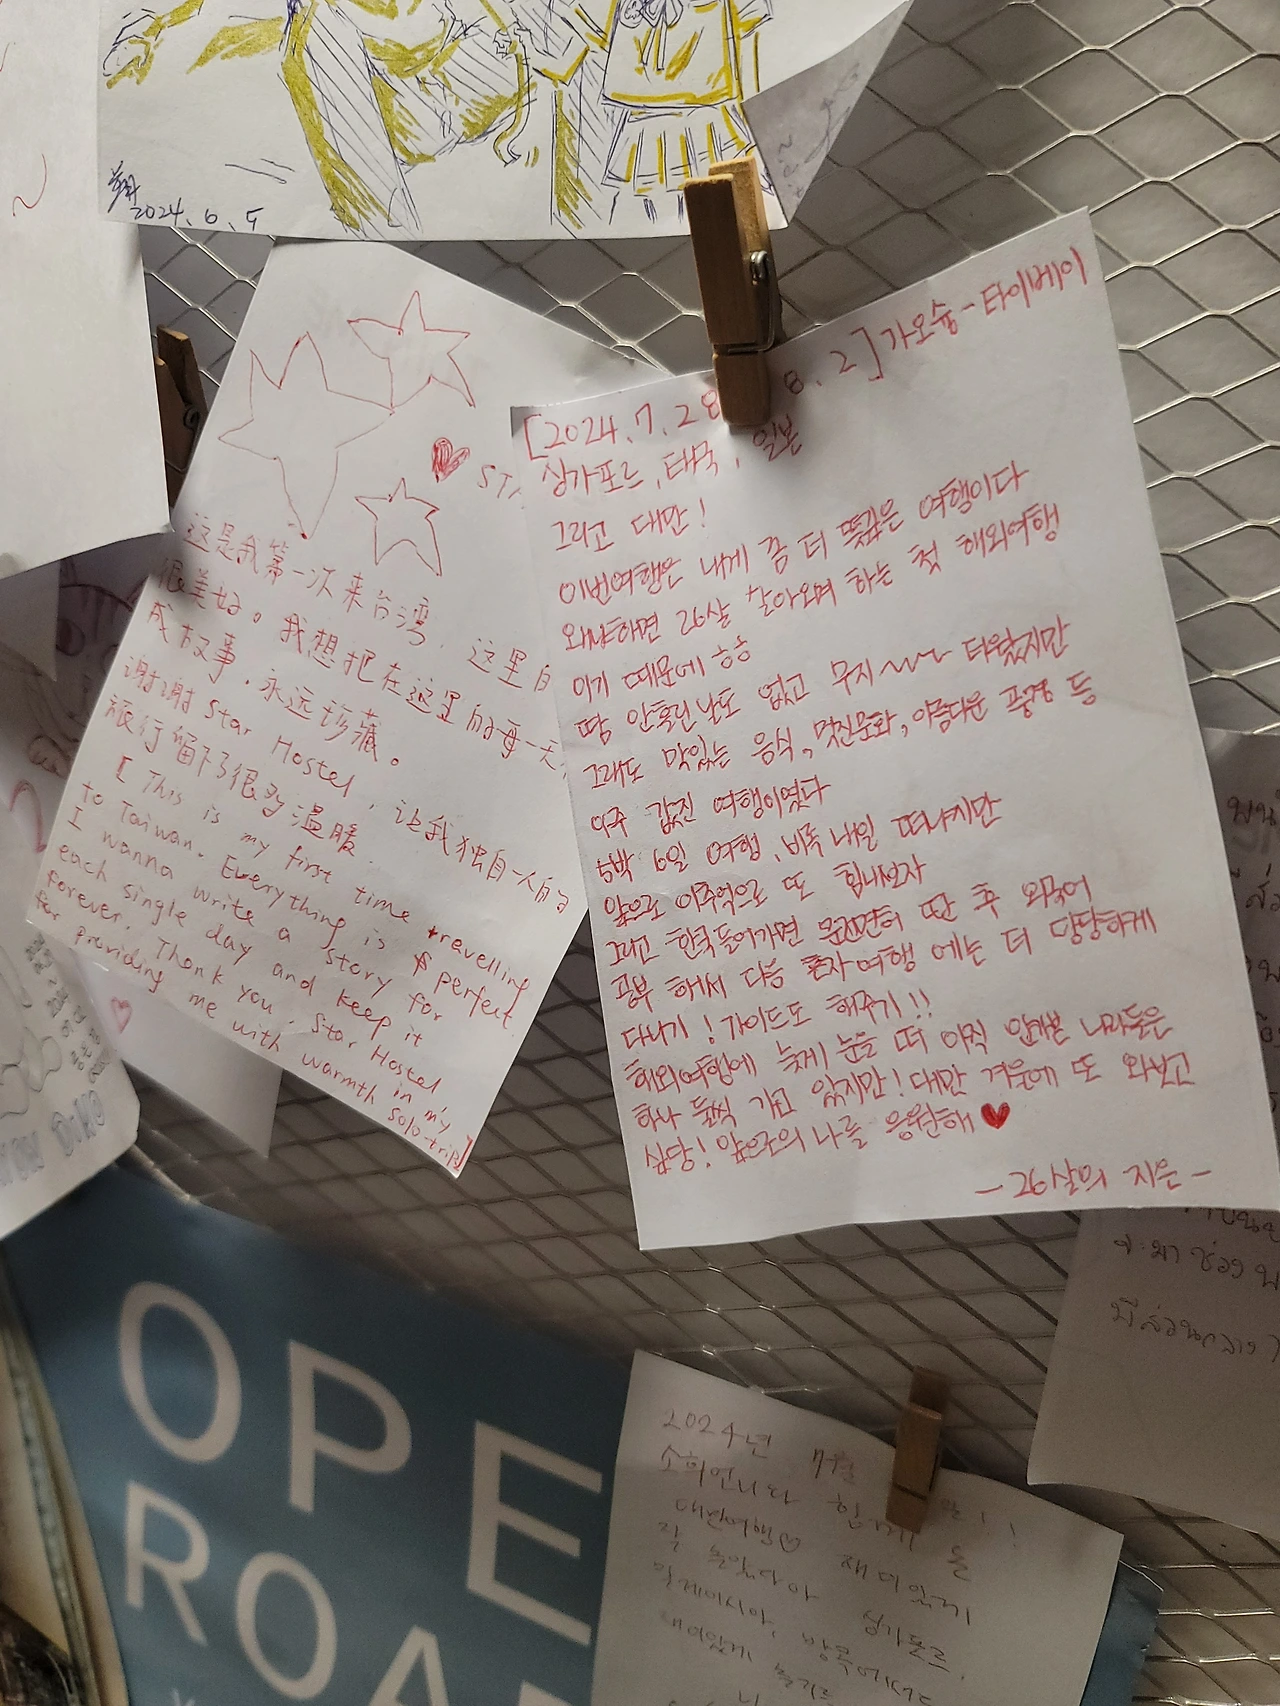 2024.6.5
STA
这是我第一次来台湾，这里的
很美好。我想把在这里的每一天，
成故事，永远珍藏。
谢谢 Star Hostel，让我独自一人的
旅行留下了很多温暖
[ This is my first time travelling
to Taiwan. Everything is perfect.
I wanna write a story for
each single day and keep it
forever. Thank you, Star Hostel
for providing me with warmth in my solo-trip]
[2024.7.28 8.2] 가오슝-타이베이
싱가포르, 태국, 일본
그리고 대만!
이번여행은 내게 좀 더 뜻깊은 여행이다
왜냐하면 26살 살아오며 하는 첫 해외여행
이기 때문에 ㅎㅎ
땀 안흘린 날도 없고 무지~~ 더웠지만
그래도 맛있는 음식, 멋진문화, 아름다운 풍경 등
아주 값진 여행이였다
5박 6일 여행, 비록 내일 떠나지만
앞으로 이추억으로 또 힘내보자
그리고 한국들어가면 운전면허 딴 후 외국어
공부 해서 다음 혼자여행 에는 더 당당하게
다니기! 가이드도 해주기!!
해외여행에 늦게 눈을 떠 아직 안가본 나라들은
하나 둘씩 가고 있지만! 대만 겨울에 또 와보고
싶당! 앞으로의 나를 응원해 ♥
- 26살의 지은 -
OPE
ROA
2024년 7월 !!
소희언니와 함께 온
대만여행♡ 재미있게
잘 놀았다아 싱가폴,
말레이시아, 방콕에서도
재미있게